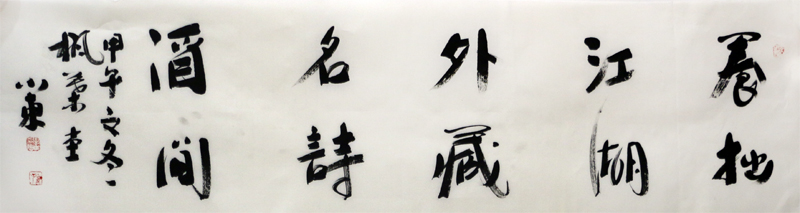 養拙
江湖
外藏
名詩
酒間
甲午之冬
楓葉堂
小東